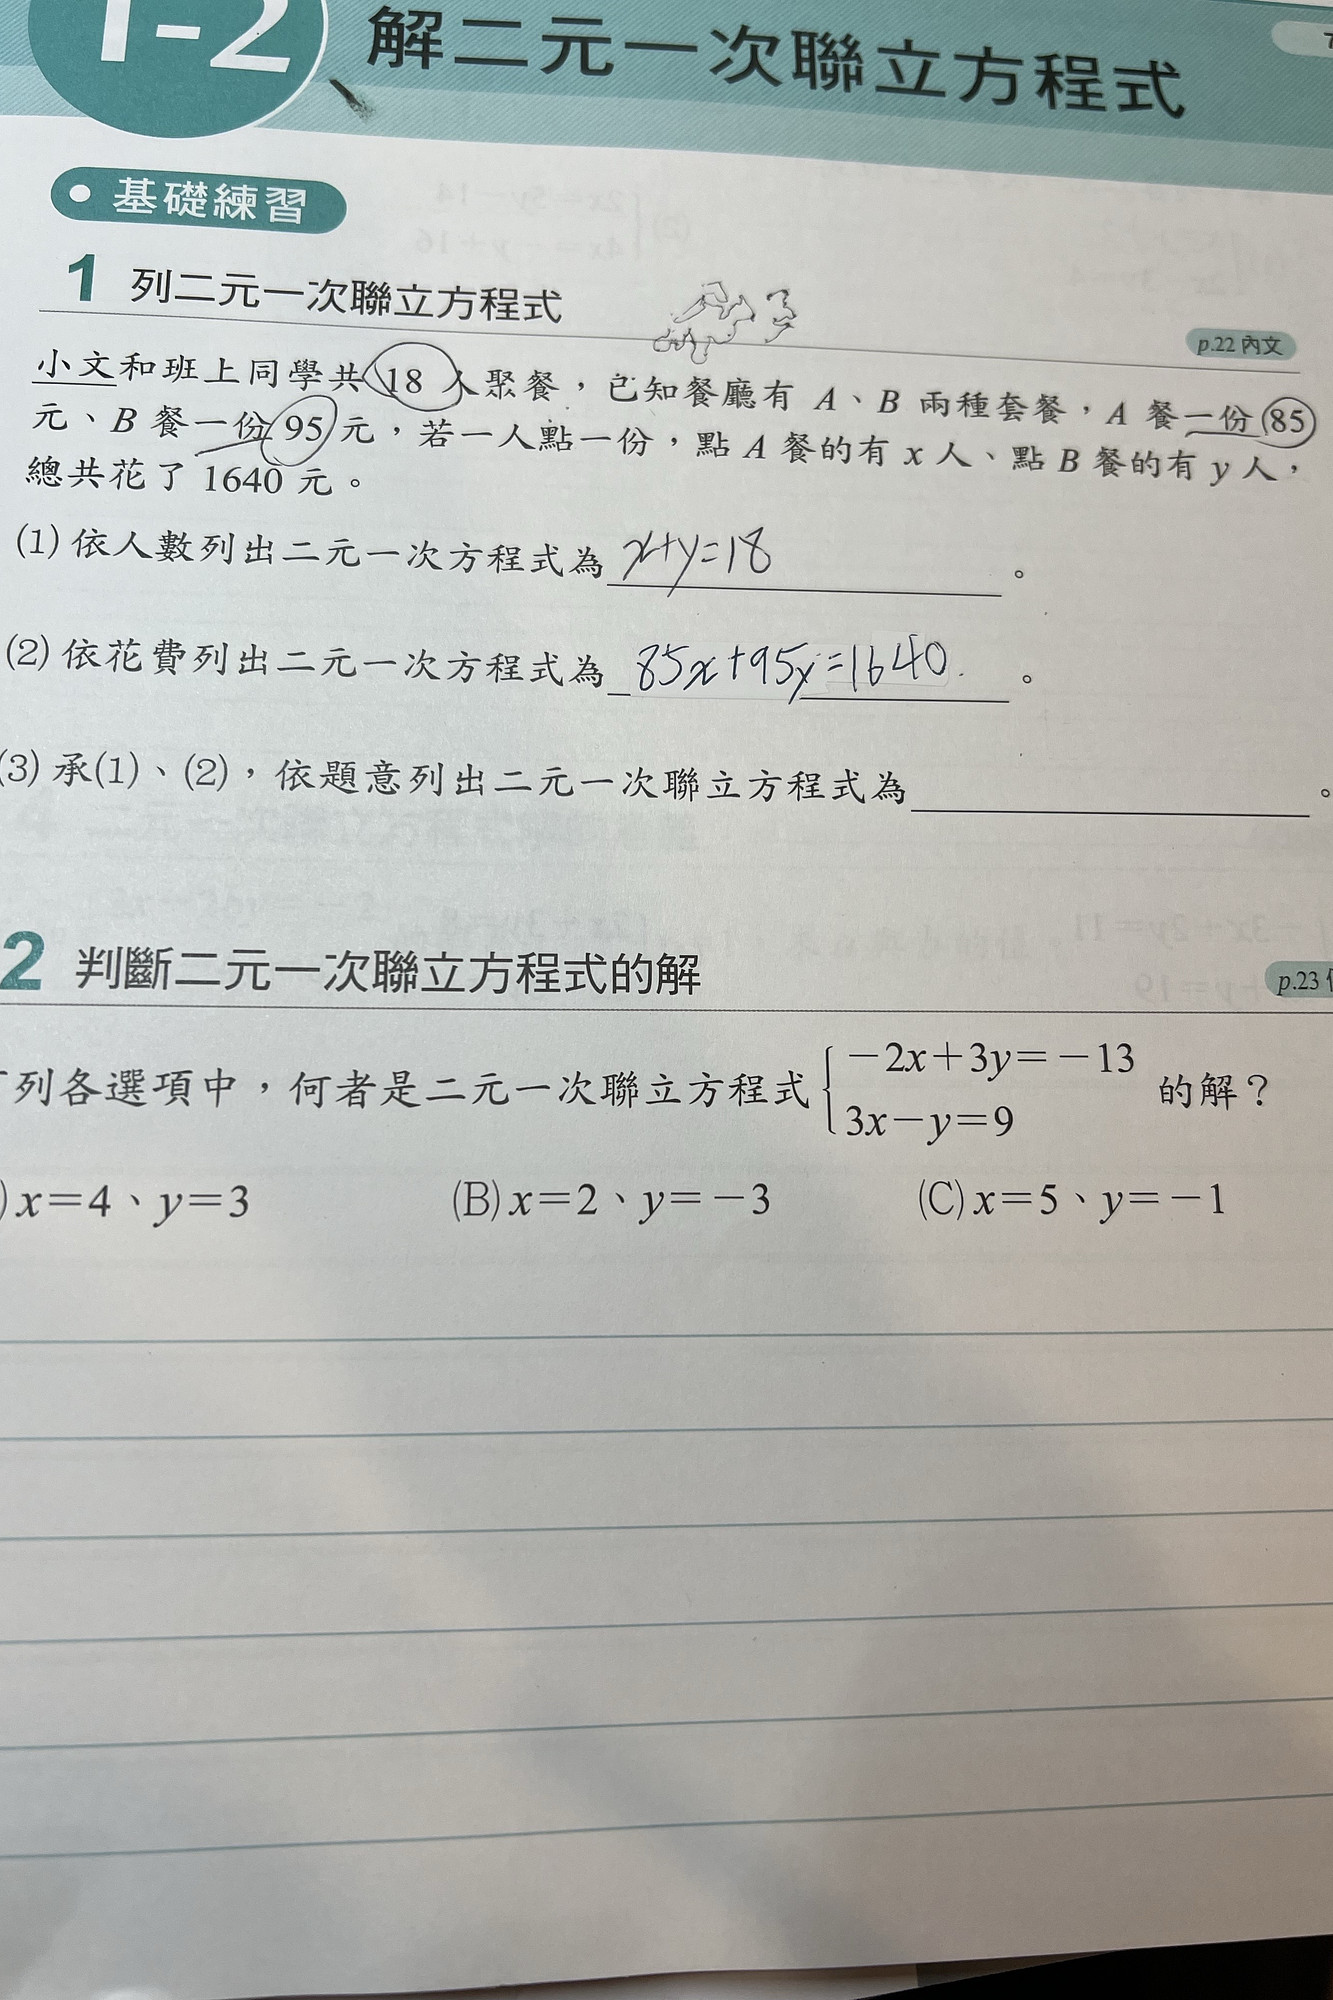 1-2 解二元一次聯立方程式
基礎練習
1 列二元一次聯立方程式
p.22 內文
小文和班上同學共 18 人聚餐，已知餐廳有 A、B 兩種套餐，A 餐一份 85
元、B 餐一份 95 元，若一人點一份，點 A 餐的有 x 人、點 B 餐的有 y 人，
總共花了 1640 元。
(1) 依人數列出二元一次方程式為 x+y=18 。
(2) 依花費列出二元一次方程式為 85x+95y=1640. 。
(3) 承(1)、(2)，依題意列出二元一次聯立方程式為 。
2 判斷二元一次聯立方程式的解
p.23
列各選項中，何者是二元一次聯立方程式 { －2x＋3y＝－13
3x－y＝9 的解？
) x＝4、y＝3 (B) x＝2、y＝－3 (C) x＝5、y＝－1